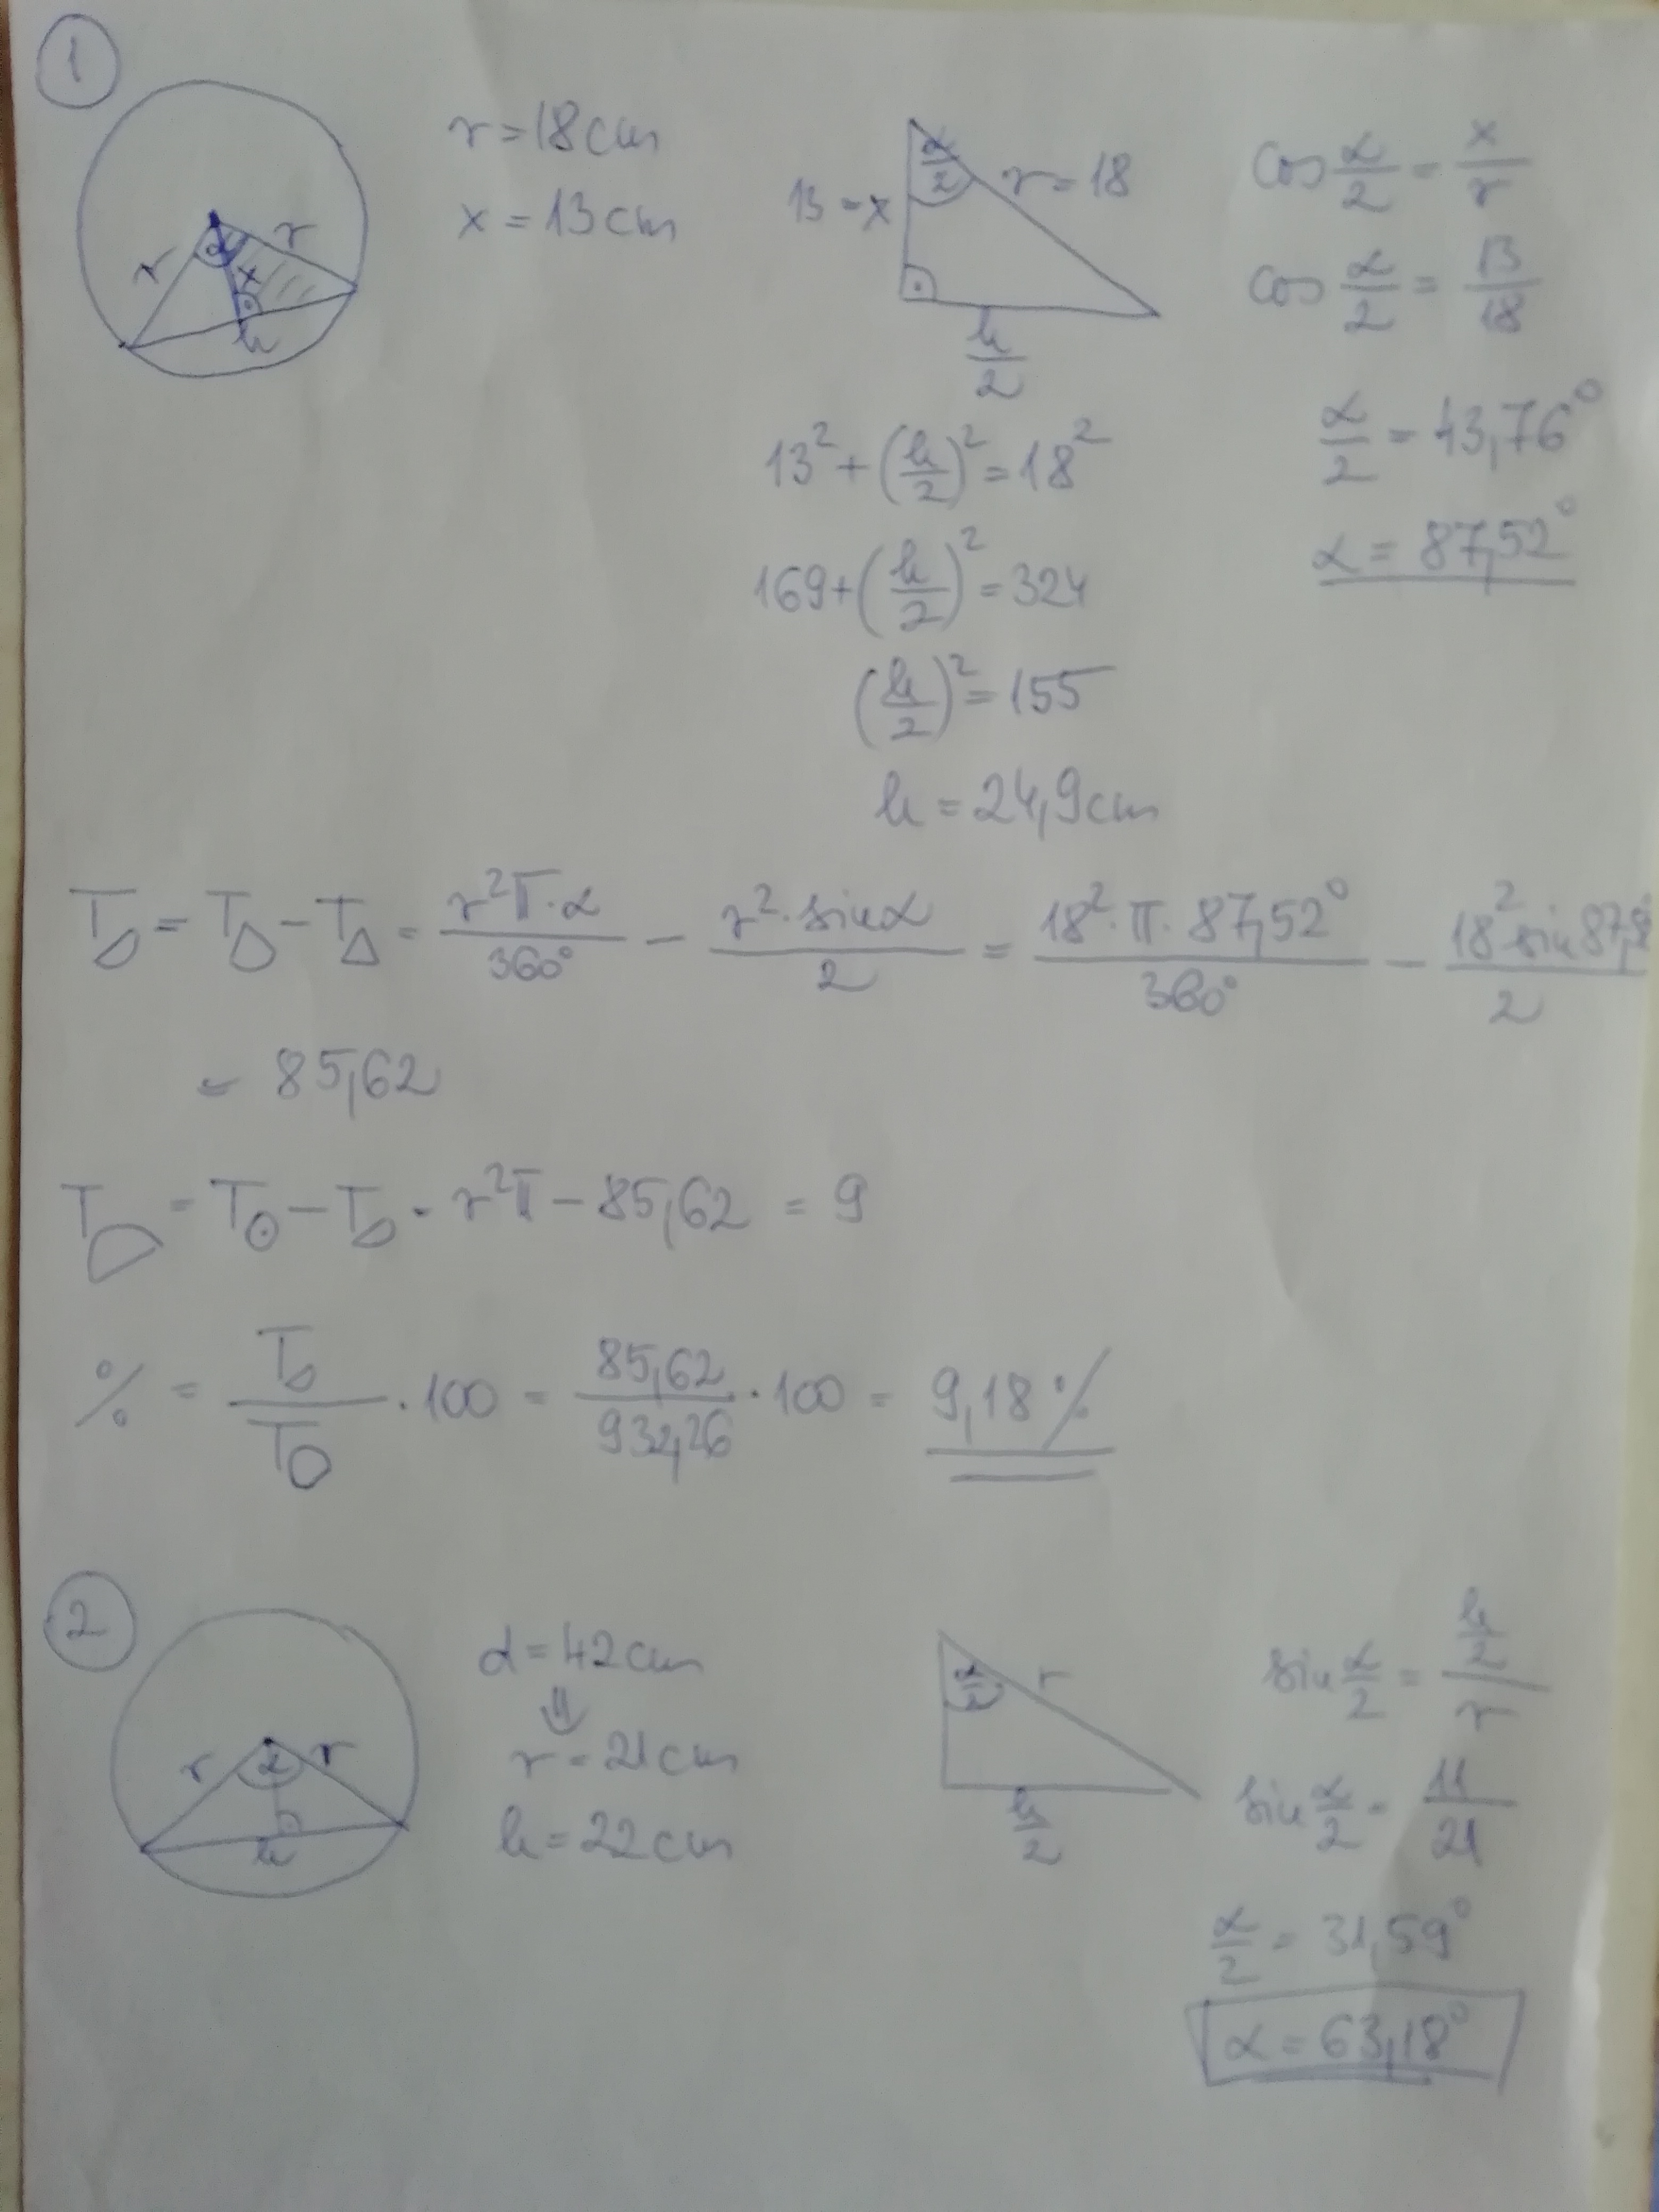 1
r = 18 cm
x = 13 cm
r r α x h
α/2 r = 18
13 = x
h/2
cos α/2 = x/r
cos α/2 = 13/18
α/2 = 43,76°
α = 87,52°
13² + (h/2)² = 18²
169 + (h/2)² = 324
(h/2)² = 155
h = 24,9 cm
T = T - T = r²π·α/360° - r²·sinα/2 = 18²·π·87,52°/360° - 18² sin 87,5/2
= 85,62
T = T⊙ - T = r²π - 85,62 = 9
% = T/T · 100 = 85,62/932,26 · 100 = 9,18 %
2
r α r h
d = 42 cm
⇓
r = 21 cm
h = 22 cm
α/2 r
h/2
sin α/2 = h/2/r
sin α/2 = 11/21
α/2 = 31,59°
α = 63,18°